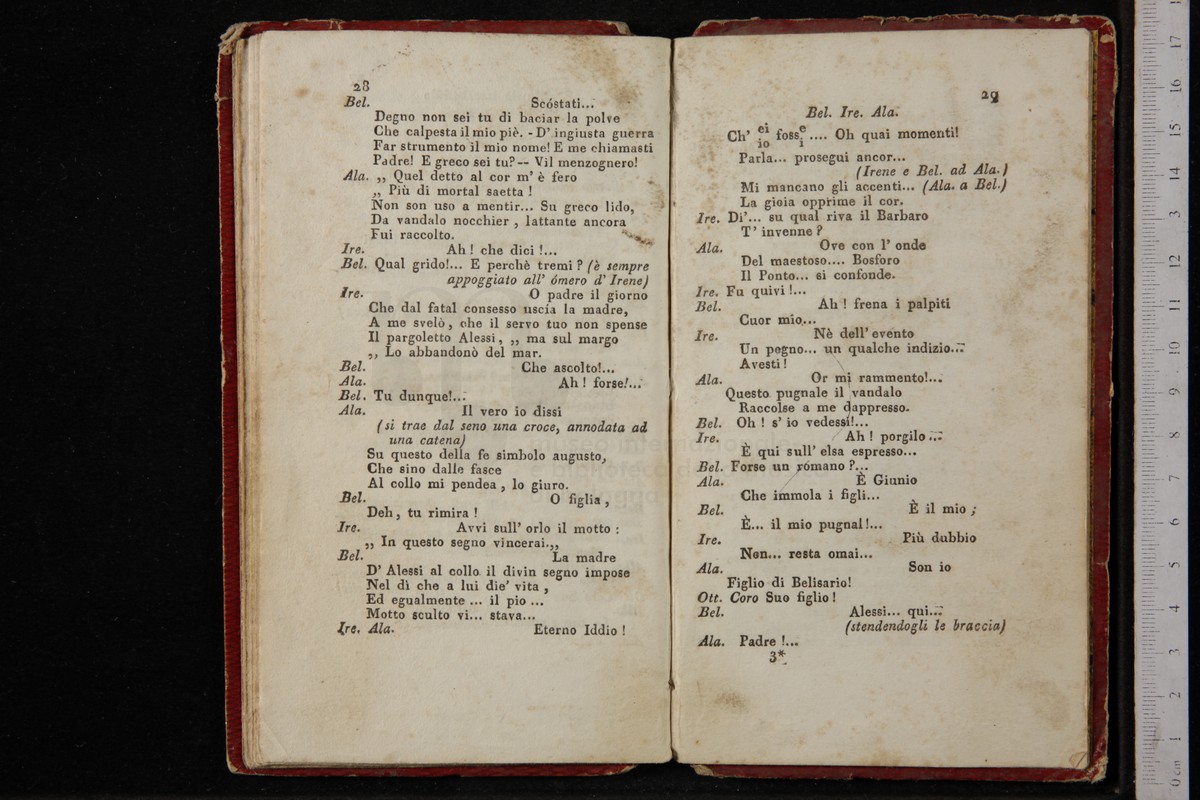 28
Bel. Scóstati...
Degno non sei tu di baciar la polve
Che calpesta il mio piè. - D' ingiusta guerra
Far strumento il mio nome! E me chiamasti
Padre! E greco sei tu? -- Vil menzognero!
Ala. ,, Quel detto al cor m' è fero
,, Più di mortal saetta !
Non son uso a mentir... Su greco lido,
Da vandalo nocchier , lattante ancora
Fui raccolto.
Ire. Ah ! che dici !...
Bel. Qual grido!... E perchè tremi ? (è sempre
appoggiato all' ómero d' Irene)
Ire. O padre il giorno
Che dal fatal consesso uscía la madre,
A me svelò, che il servo tuo non spense
Il pargoletto Alessi, ,, ma sul margo
,, Lo abbandonò del mar.
Bel. Che ascolto!...
Ala. Ah ! forse!...
Bel. Tu dunque!...
Ala. Il vero io dissi
(si trae dal seno una croce, annodata ad
una catena)
Su questo della fe simbolo augusto,
Che sino dalle fasce
Al collo mi pendea , lo giuro.
Bel. O figlia ,
Deh, tu rimira !
Ire. Avvi sull' orlo il motto :
,, In questo segno vincerai.,,
Bel. La madre
D' Alessi al collo il divin segno impose
Nel dì che a lui die' vita ,
Ed egualmente ... il pio ...
Motto sculto vi... stava...
Ire. Ala. Eterno Iddio !
29
Bel. Ire. Ala.
Ch' ei foss e .... Oh quai momenti!
io i
Parla... prosegui ancor...
(Irene e Bel. ad Ala.)
Mi mancano gli accenti... (Ala. a Bel.)
La gioia opprime il cor.
Ire. Di'... su qual riva il Barbaro
T' invenne ?
Ala. Ove con l' onde
Del maestoso.... Bosforo
Il Ponto... si confonde.
Ire. Fu quivi !...
Bel. Ah ! frena i palpiti
Cuor mio...
Ire. Nè dell' evento
Un pegno... un qualche indizio...
Avesti !
Ala. Or mi rammento!...
Questo pugnale il vandalo
Raccolse a me dappresso.
Bel. Oh ! s' io vedessi!...
Ire. Ah ! porgilo ...
È qui sull' elsa espresso...
Bel. Forse un romano ?...
Ala. È Giunio
Che immola i figli...
Bel. È il mio ;
È... il mio pugnal !...
Ire. Più dubbio
Non... resta omai...
Ala. Son io
Figlio di Belisario!
Ott. Coro Suo figlio !
Bel. Alessi... qui...
(stendendogli le braccia)
Ala. Padre !...
3*